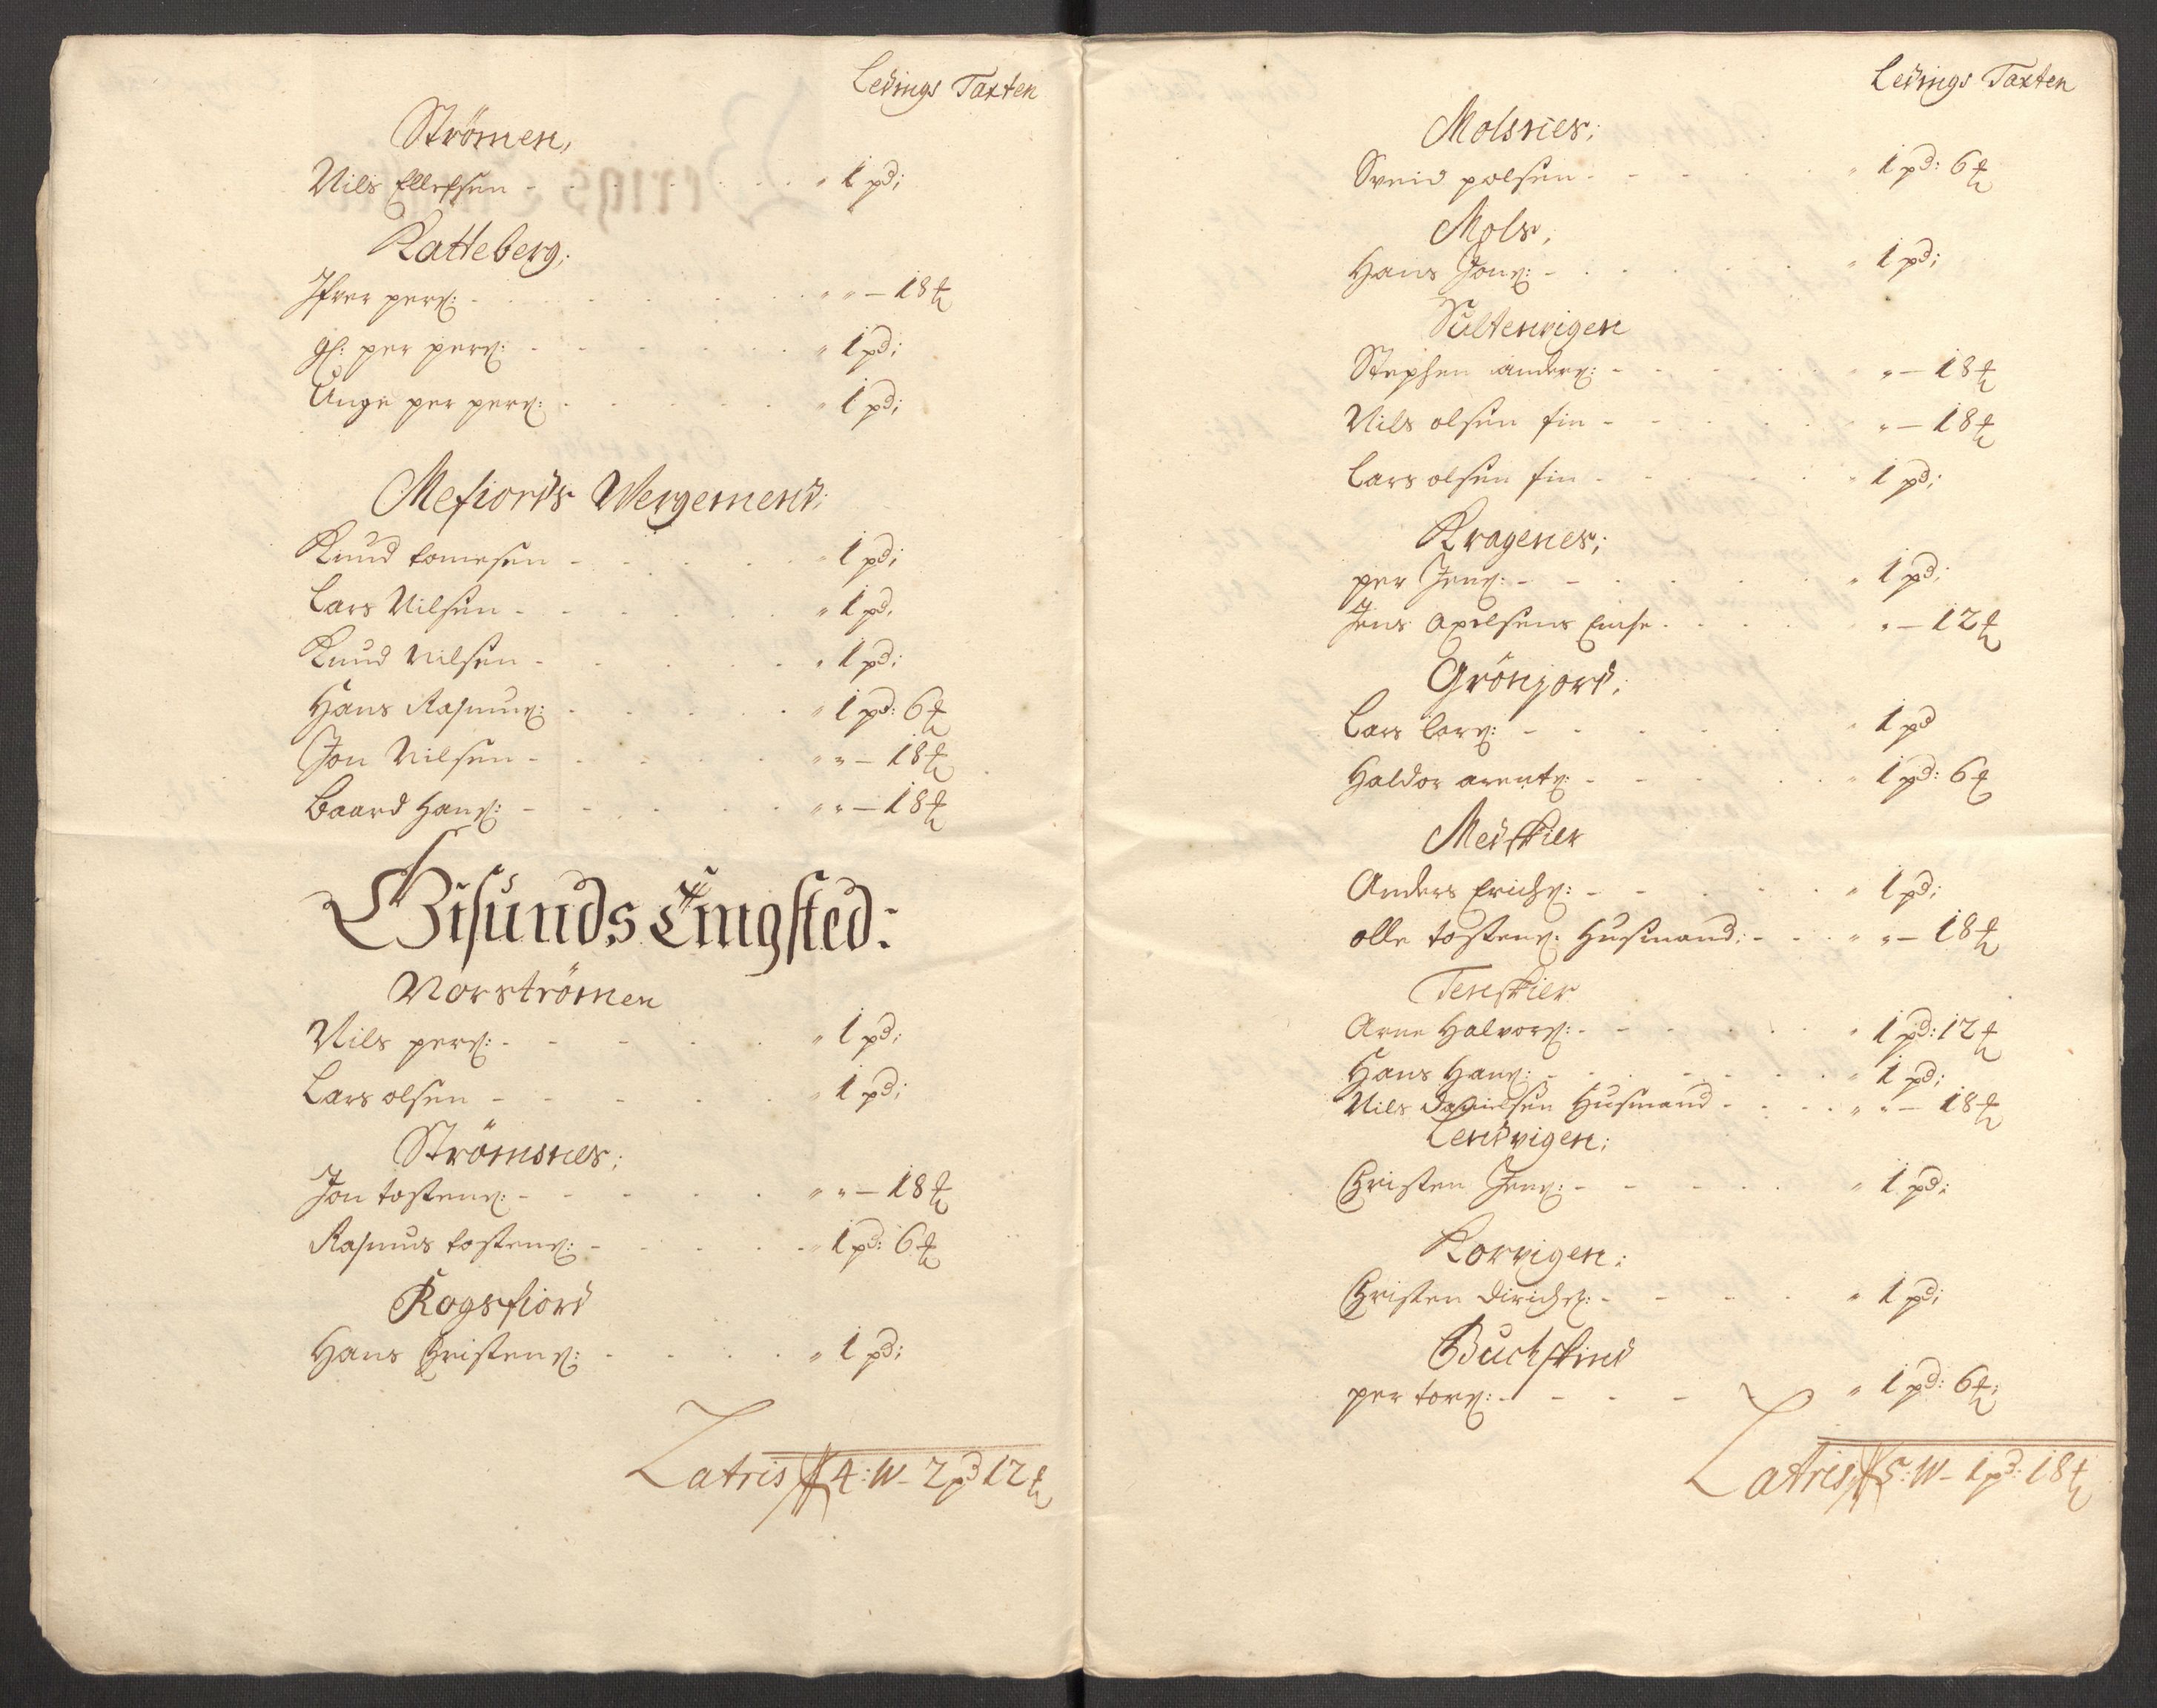 Ledings Taxten
Strömen,
Nils Ellefsen - - - " 1 pd;
Katteberg;
Ifver perß: - - - " " - 18 ℔
gl: per perß: - - - " 1 pd;
Unge per perß: - - - " 1 pd;
Mefiords Wergemend;
Knud tomesen - - - " 1 pd;
Lars Nilsen - - - " 1 pd;
Knud Nilsen - - - " 1 pd;
Hans Rasmuß: - - - " 1 pd: 6 ℔
Jon Nilsen - - - " " - 18 ℔
Baard Hanß: - - - " " - 18 ℔
Gisunds Tingsted:
Norströmen
Nils perß: - - - " 1 pd;
Lars olsen - - - " 1 pd;
Strömsnes;
Jon tostenß: - - - " " - 18 ℔
Rasmus tostenß: - - - " 1 pd: 6 ℔
Rogsfiord
Hans Christenß: - - - " 1 pd;
Latris 4: W - 2 pd 12 ℔
Ledings Taxten
Molsnes;
Svend polsen - - - " 1 pd: 6 ℔
Mols,
Hans Jonß: - - - " 1 pd;
Sultenvigen
Stephen anderß: - - - " - 18 ℔
Nils olsen fin - - - " - 18 ℔
Lars olsen fin - - - " 1 pd;
Kragenes;
per Jenß: - - - " 1 pd;
Jens Axelsens Encke - - - " - 12 ℔
Grönjord;
Lars larß: - - - " 1 pd
Haldor arentß: - - - " 1 pd: 6 ℔
Meiskier
Anders Erichß: - - - " 1 pd;
olle tostenß: Husmand: - - - " " - 18 ℔
Tenskier
Arne Halvorß: - - - " 1 pd: 12 ℔
Hans Hanß: - - - " 1 pd;
Nils Danielsen Husmand - - - " " - 18 ℔
Lendvigen;
Christen Jenß: - - - " 1 pd;
Korvigen;
Christen Dirichß: - - - " 1 pd;
Buchskind
per torß: - - - " 1 pd: 6 ℔;
Latris 5: W - 1 pd: 18 ℔